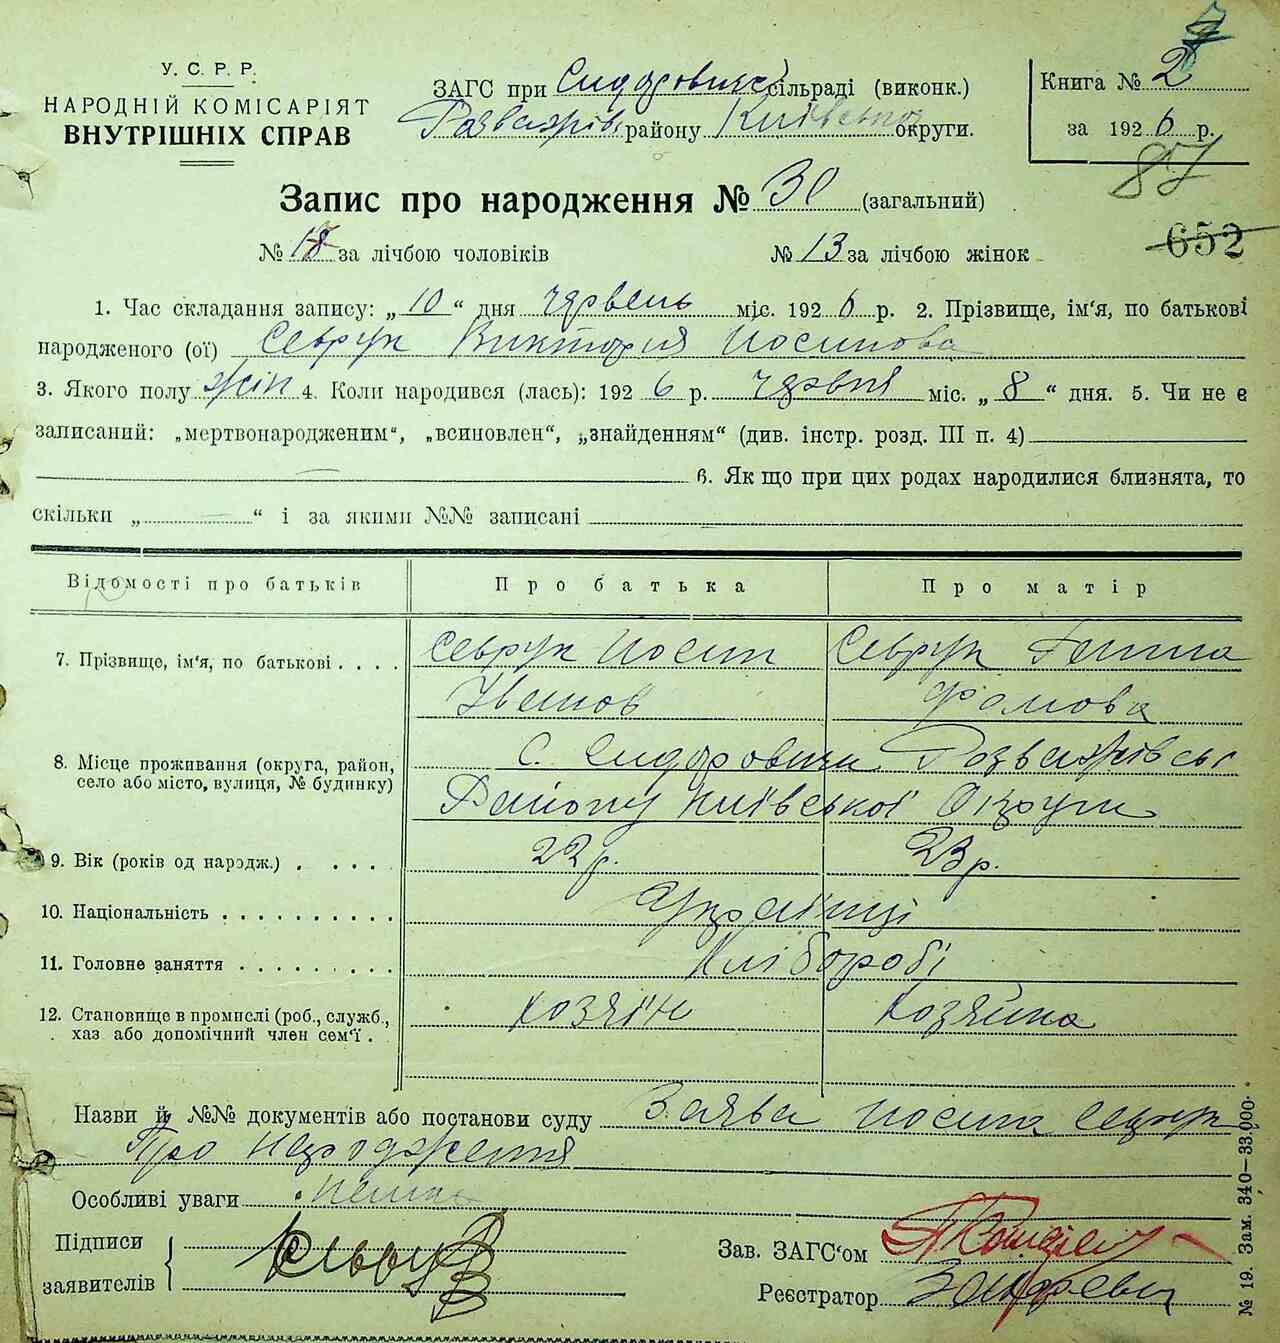 У. С. Р. Р.
НАРОДНІЙ КОМІСАРІЯТ
ВНУТРІШНІХ СПРАВ
ЗАГС при Сидоровиць сільраді (виконк.)
Розважів. району Київської округи.
Книга № 2
за 1926 р.
87
652
Запис про народження № 30 (загальний)
№ 17 за лічбою чоловіків № 13 за лічбою жінок
1. Час складання запису: „10“ дня червень міс. 1926 р. 2. Прізвище, ім'я, по батькові
народженого (ої) Севрук Виктория Иосипова
3. Якого полу жін 4. Коли народився (лась): 1926 р. червня міс. „8“ дня. 5. Чи не є
записаний: „мертвонародженим“, „всиновлен“, „знайденням“ (див. інстр. розд. III п. 4)
6. Як що при цих родах народилися близнята, то
скільки „ “ і за якими №№ записані
Відомості про батьків Про батька Про матір
7. Прізвище, ім'я, по батькові . . . . Севрук Иосип Севрук Ганна
Иванов Фомова
8. Місце проживання (округа, район, село або місто, вулиця, № будинку) С. Сидоровичи Розважівськ
Району Київської Округи
9. Вік (років од нарэдж.) . . . . . 22 р. 23 р.
10. Національність . . . . . . . . . . Українці
11. Головне заняття . . . . . . . . . Хліборобі
12. Становище в промислі (роб., служб., хаз або допомічний член сем'ї . хозяїн хозяйка
Назви й №№ документів або постанови суду Заява Иосипа Севрук
Про народження
Особливі уваги Нема
Підписи
заявителів
Зав. ЗАГС'ом
Реєстратор
№ 19. Зам. 340—33.000.